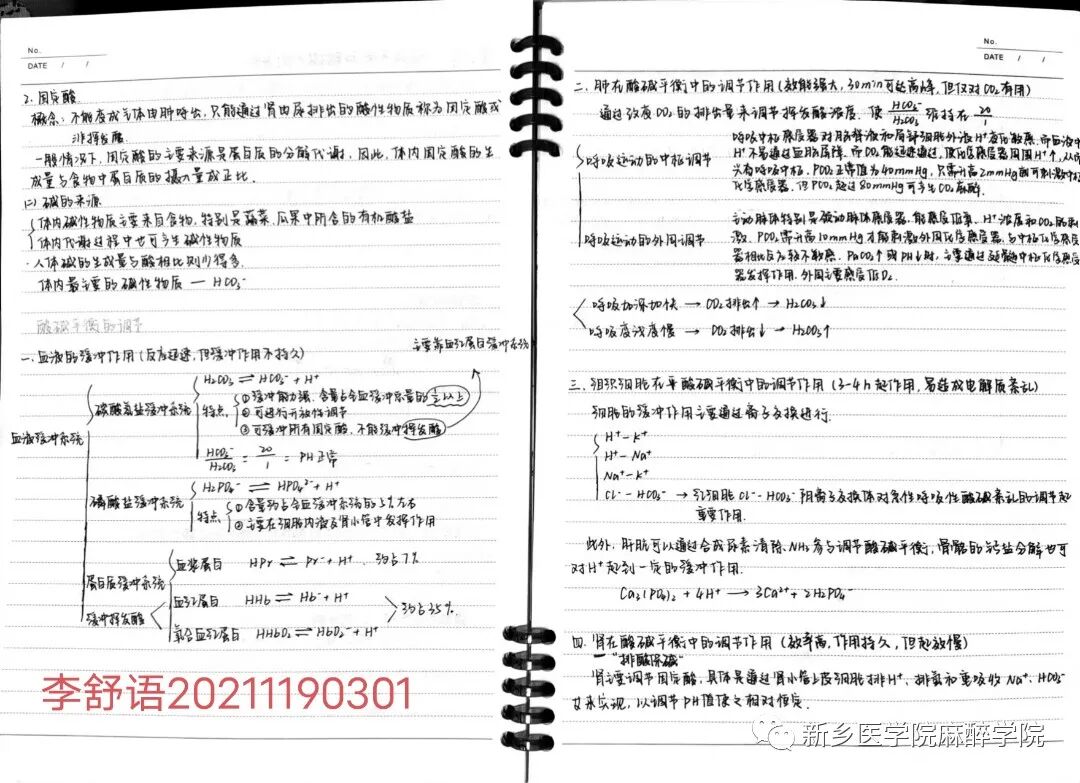 No.
DATE / /
2. 固定酸
概念：不能变成气体由肺呼出，只能通过肾由尿排出的酸性物质称为固定酸或
非挥发酸.
一般情况下，固定酸的主要来源是蛋白质的分解代谢，因此，体内固定酸的生
成量与食物中蛋白质的摄入量成正比.
(二) 碱的来源
体内碱性物质主要来自食物，特别是蔬菜、瓜果中所含的有机酸盐
体内代谢过程中也可产生碱性物质
·人体碱的生成量与酸相比则少得多.
体内最主要的碱性物质 — HCO₃⁻
酸碱平衡的调节
一. 血液的缓冲作用 (反应迅速，但缓冲作用不持久)
主要靠血红蛋白缓冲系统
血液缓冲系统
碳酸氢盐缓冲系统
H₂CO₃ ⇌ HCO₃⁻ + H⁺
特点
① 缓冲能力强，含量占全血缓冲总量的1/2以上
② 可进行开放性调节
③ 可缓冲所有固定酸，不能缓冲挥发酸
HCO₃⁻/H₂CO₃ = 20/1 = PH正常
磷酸盐缓冲系统
H₂PO₄⁻ ⇌ HPO₄²⁻ + H⁺
特点
① 含量约占全血缓冲系统的5%左右
② 主要在细胞内液及肾小管中发挥作用
蛋白质缓冲系统
缓冲挥发酸
血浆蛋白 HPr ⇌ Pr⁻ + H⁺. 约占7%
血红蛋白 HHb ⇌ Hb⁻ + H⁺
氧合血红蛋白 HHbO₂ ⇌ HbO₂⁻ + H⁺
约占35%.
李舒语20211190301
No.
DATE / /
二. 肺在酸碱平衡中的调节作用 (效能强大，30min可达高峰，但仅对CO₂有用)
通过改变CO₂的排出量来调节挥发酸浓度，使 HCO₃⁻/H₂CO₃ 维持在 20/1
呼吸运动的中枢调节
呼吸中枢感受器对脑脊液和局部细胞外液H⁺变化敏感，而血液中
H⁺不易通过血脑屏障，而CO₂能迅速通过，使化学感受器周围H⁺↑，从而
兴奋呼吸中枢. PCO₂正常值为40mmHg，只需升高2mmHg即可刺激中枢
化学感受器，但PCO₂超过80mmHg可产生CO₂麻醉.
呼吸运动的外周调节
主动脉体特别是颈动脉体感受器，能感低氧、H⁺浓度和CO₂的刺
激. PCO₂需升高10mmHg才能刺激外周化学感受器，与中枢化学感受
器相比反应较不敏感. PaCO₂↑或PH↓时，主要通过延髓中枢化学感受
器发挥作用. 外周主要感受低O₂.
呼吸加深加快 → CO₂排出↑ → H₂CO₃↓
呼吸变浅变慢 → CO₂排出↓ → H₂CO₃↑
三. 组织细胞在平酸碱平衡中的调节作用 (3-4h起作用，易造成电解质紊乱)
细胞的缓冲作用主要通过离子交换进行.
H⁺-K⁺
H⁺-Na⁺
Na⁺-K⁺
Cl⁻-HCO₃⁻ → 红细胞Cl⁻-HCO₃⁻阴离子交换体对急性呼吸性酸碱紊乱的调节起
重要作用.
此外，肝脏可以通过合成尿素清除NH₃参与调节酸碱平衡，骨骼的钙盐分解也可
对H⁺起到一定的缓冲作用.
Ca₃(PO₄)₂ + 4H⁺ → 3Ca²⁺ + 2H₂PO₄⁻
四. 肾在酸碱平衡中的调节作用 (效率高，作用持久，但起效慢)
— "排酸保碱"
肾主要调节固定酸，具体是通过肾小管上皮细胞排H⁺、排氨和重吸收Na⁺、HCO₃⁻
来实现，以调节PH值使之相对恒定.
新乡医学院麻醉学院